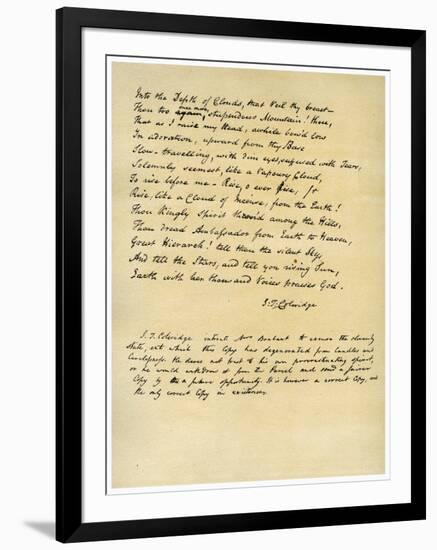 Into the Depth of Clouds, that Veil thy breast—
Thou too again, stupendous Mountain! thou,
once more
That as I raise my Head, awhile bow'd low
In adoration, upward from thy Base
Slow-travelling, with dim eyes, suffused with Tears,
Solemnly seemest, like a Vapoury Cloud,
To rise before me—Rise, o ever Rise,
Rise, like a Cloud of Incense, from the Earth!
Thou Kingly Spirit thron'd among the Hills,
Thou dread Ambassador from Earth to Heaven,
Great Hierarch! tell thou the silent Sky,
And tell the Stars, and tell yon rising Sun,
Earth with her thousand Voices praises God.
S. T. Coleridge
S. T. Coleridge intreats Mrs Brabant to excuse the slovenly
state, into which this Copy has degenerated from Candles and
Carelessness. He dares not trust to his own procrastinating spirit,
or he would withdraw it from the Parcel and send a fairer
Copy by a future opportunity. It is however a correct Copy, and
the only correct Copy in existence.